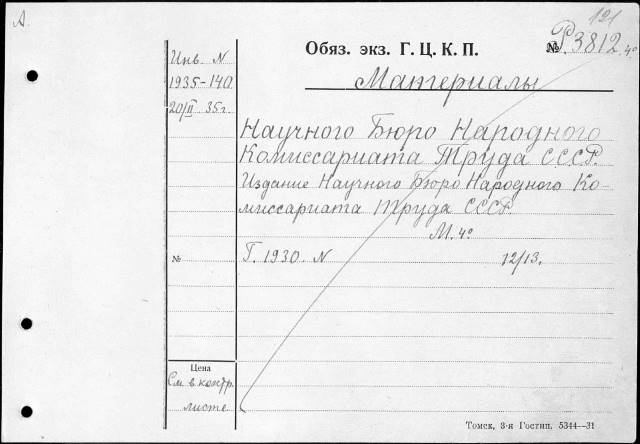 А.
121
Обяз. экз. Г. Ц. К. П.
№ Р.3812 4°
Инв. N
1935-140
20/II 35г.
Материалы
Научного Бюро Народного
Комиссариата Труда СССР.
Издание Научного Бюро Народного Ко-
миссариата Труда СССР
М. 4°
№
Г. 1930. N 12/13.
Цена
См. в контр.
листе
Томск, 3-я Гостип. 5344—31